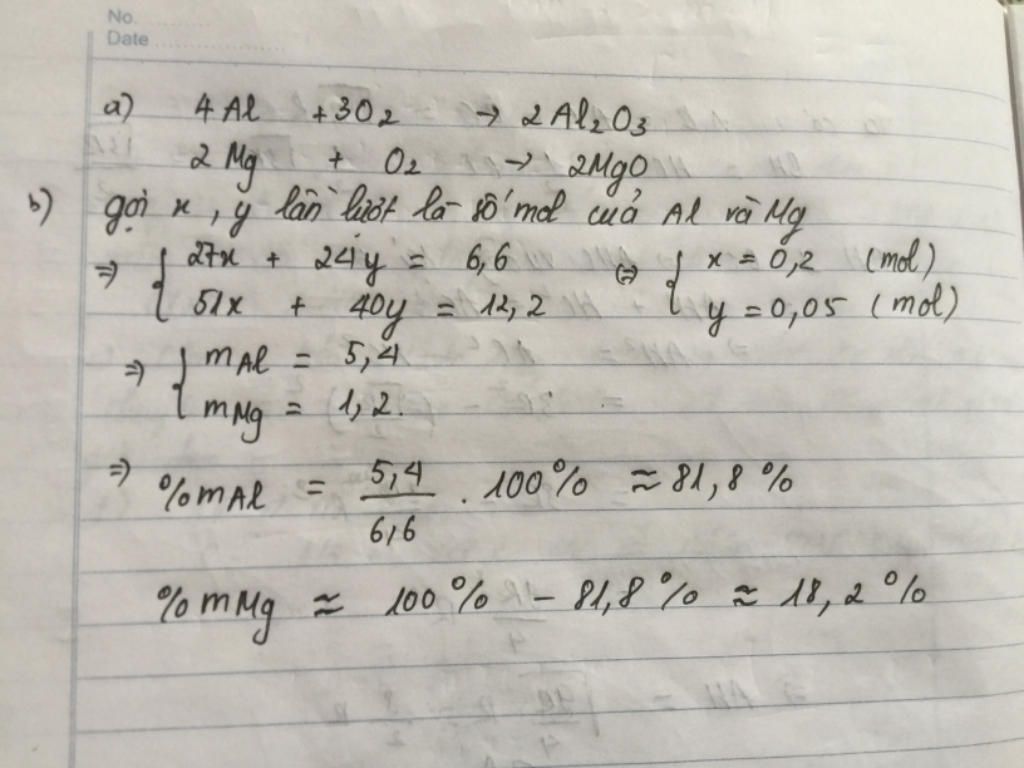 No.
Date
a) 4Al +3O₂ → 2Al₂O₃
2Mg + O₂ → 2MgO
b) gọi x, y lần lượt là số mol của Al và Mg
=> { 27x + 24y = 6,6 <=> { x = 0,2 (mol)
51x + 40y = 12,2 y = 0,05 (mol)
=> { mAl = 5,4
mMg = 1,2.
=> %mAl = 5,4/6,6 . 100% ≈ 81,8%
%mMg ≈ 100% - 81,8% ≈ 18,2%